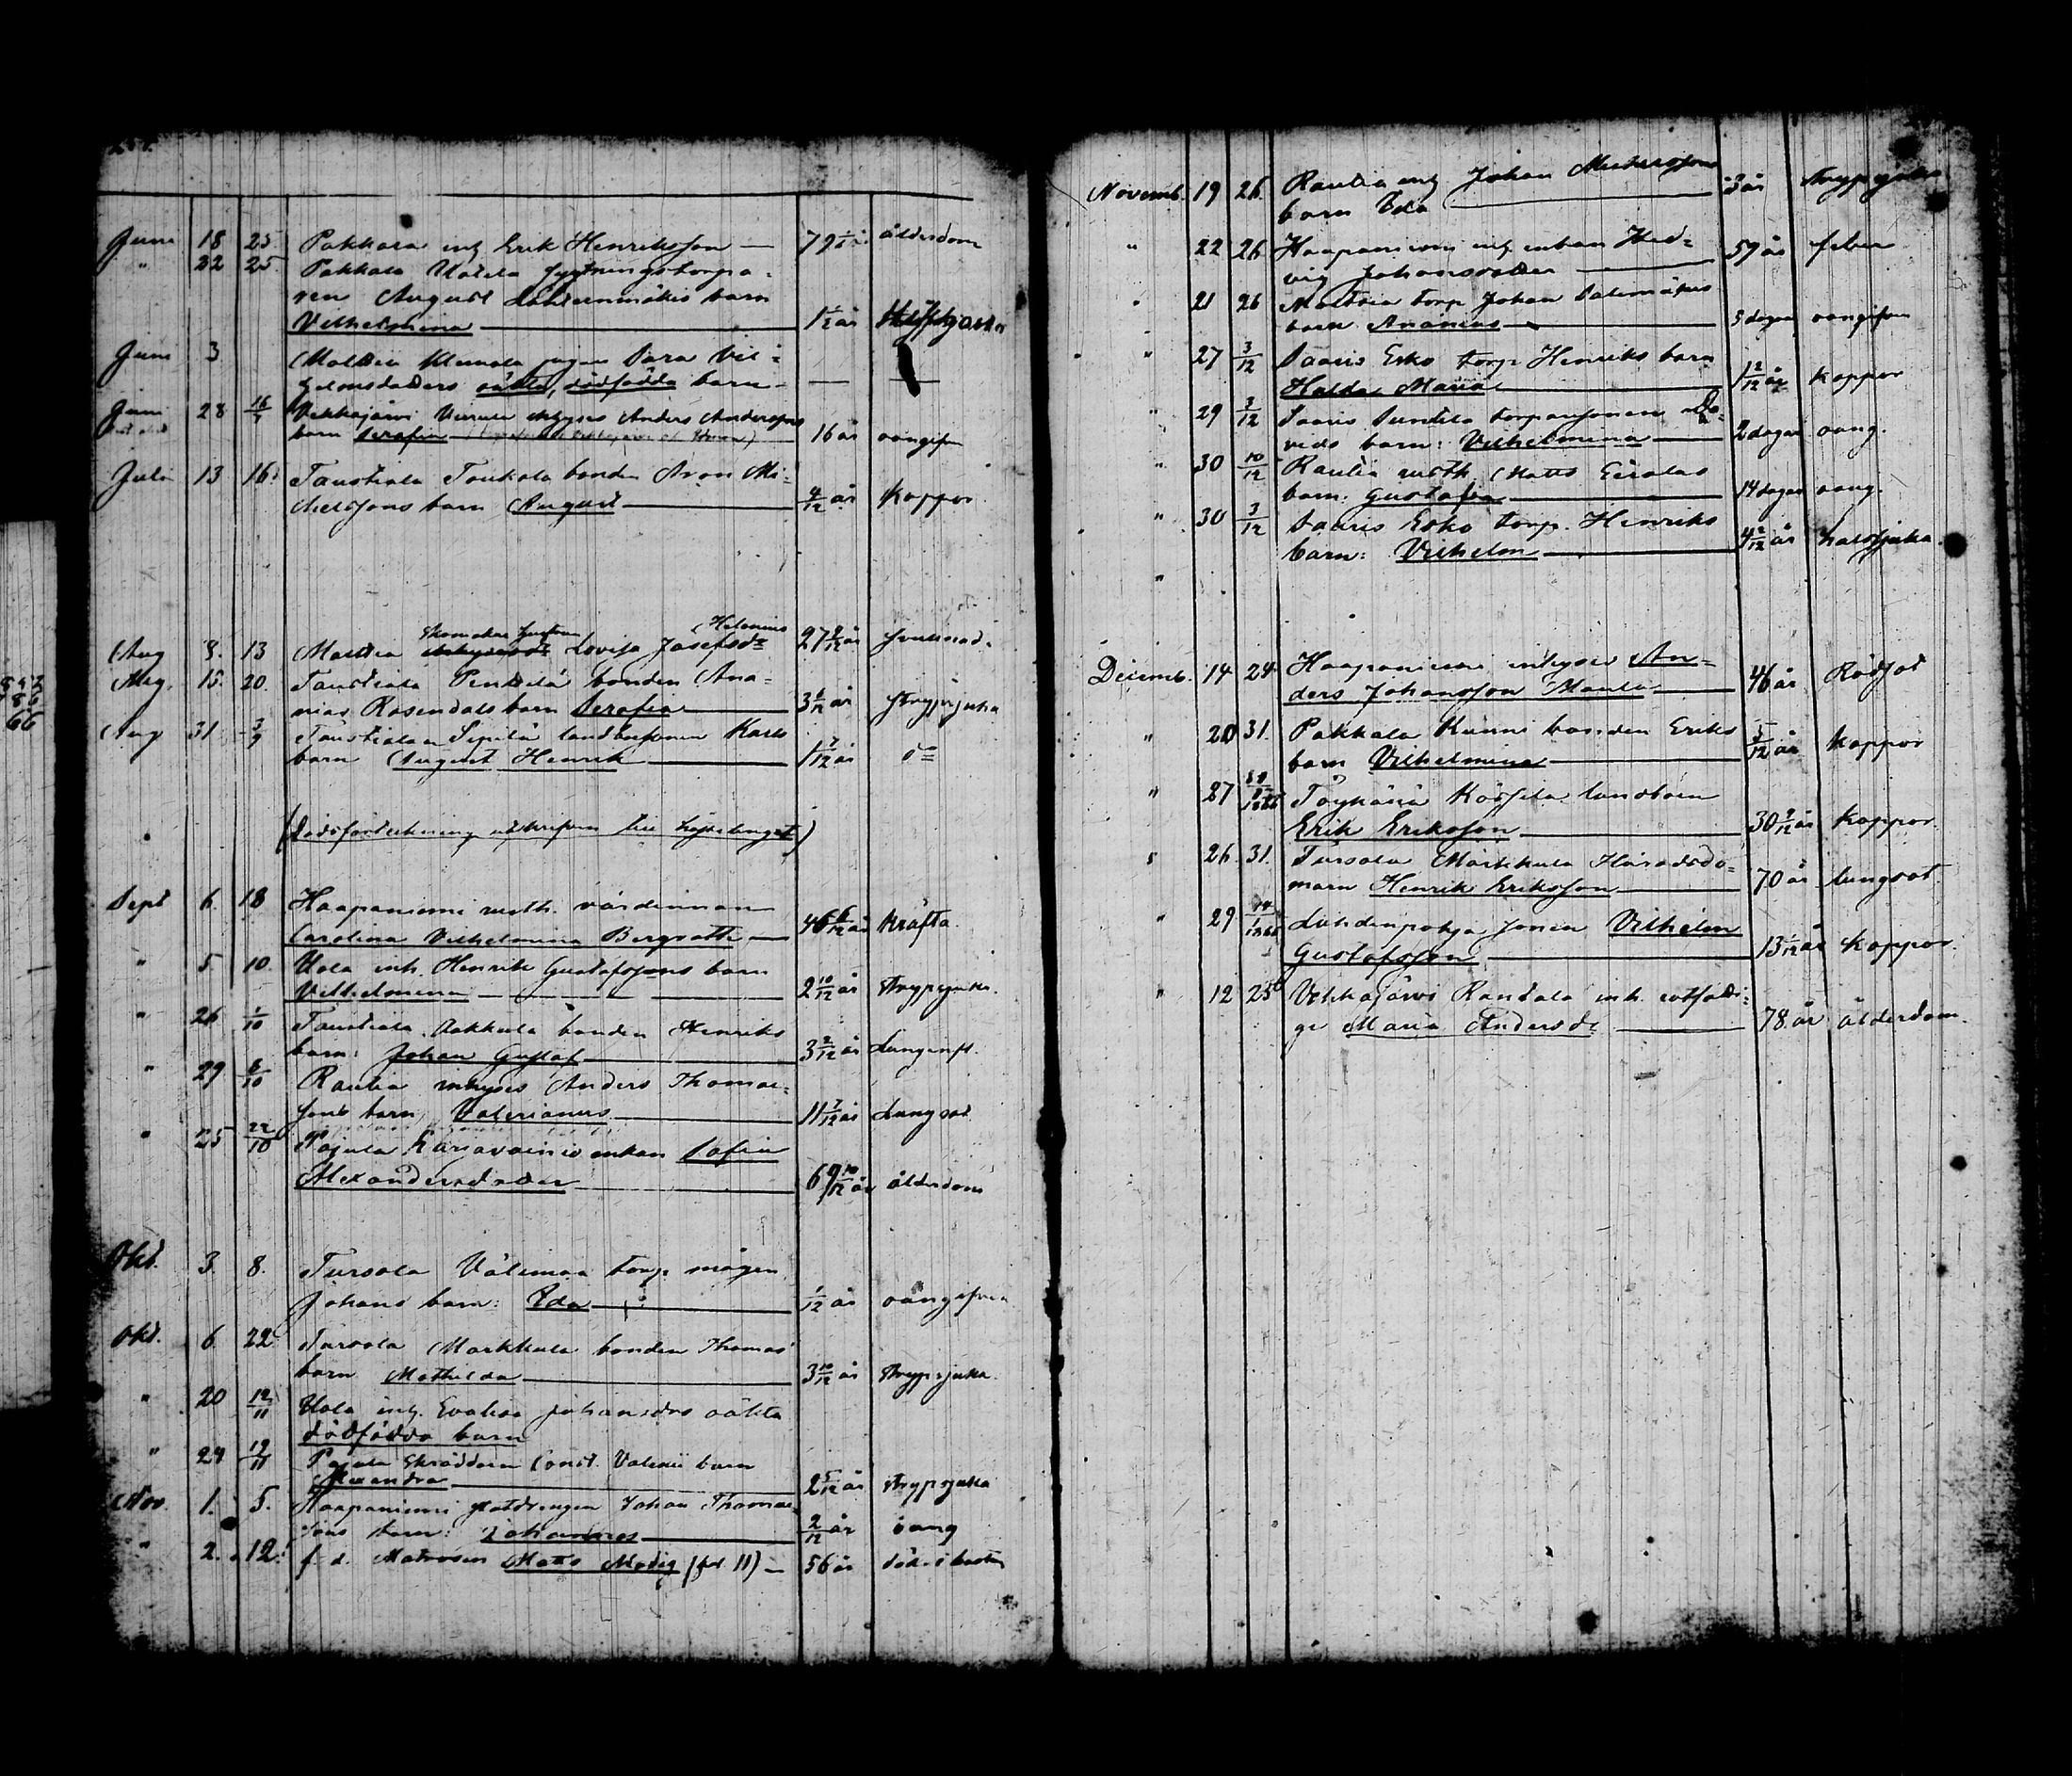 Juni 18 25 Pakkala inh Erik Henriksson — 79 år ålderdom
" 22 25 Pakkala Uotila
ren August barn
Vilhelmina — 1 1/2 år
Juni 3 Mattila pigan Sara Vil-
helmsdotters oäkta, dödfödda barn —
Juni 28 16/7 Vekkajärvi inhyses Anders Anderssons
barn Serafia 16 år oangifv
Juli 13 16. Taustiala Toukola bonden Aron Mi-
chelssons barn August — 4/12 år Koppor
Helenius
Aug 13 Lovisa Josefsd:r 27 år
Aug. 15. 20. Taustiala Penttilä bonden Ana-
nias Rosendals barn Serafia — 3 år strypsjuka
Aug 31 3/9 Taustiala Seppälä landbonden Karls
barn August Henrik — 1 7/12 år d:o
(Dödsförteckning utskrifven till )
Sept 6. 18 Haapaniemi rusth. värdinnan
Carolina Vilhelmina Bergroth — 46 6/12 år kräfta.
" 5. 10. Uola inh. Henrik Gustafssons barn
Vilhelmina — 2 10/12 år Strypsjuka.
" 26 1/10 Taustiala Aakkula bonden Henriks
barn: Johan Gustaf — 3 2/12 år Lunginfl.
" 29 6/10 Rautia inhyses Anders Thomas-
sons barn Valerianus — 11 7/12 år Lungsot
" 25 22/10 Pajula Karsavainio enkan Sofia
Alexandersdotter — 69 10/12 år ålderdom
Okt. 3. 8. Tursola Välimaa torp mågen
Johans barn: Ida — 1/12 år oangifven
Okt. 6 22 Tursola Markkula bonden Thomas
barn Mathilda — 3 10/12 år Strypsjuka.
" 20 12/11 Uola inh. Johansdrs oäkta
dödfödda barn
" 24 12/11 Pajula Skräddaren Const. Valenii barn
Alexandra — 2 5/12 år strypsjuka
Nov. 1. 5. Haapaniemi statdrängen Johan Thomas-
sons barn: Johannes — 2/12 år oang
" 2. 12. f. d. Matrosen Matts Modig (fol. 11) — 56 år
Novemb. 19 26. Rautia inh Johan
barn Ida — 3 år Strypsjuka
" 22 26 Haapaniemi inh. enkan Hed-
vig Johansdotter — 59 år feber
" 21 26 Mattila torp Johan Salomäkis
barn Ananias — 5 dagar oangifven
" 27 3/12 Saaris Esko torp. Henriks barn
Hulda Maria — 1 2/12 år Koppor
" 29 3/12 Saaris Punttila torparsonen Da-
vids barn: Vilhelmina — 2 dagar oang.
" 30 10/12 Rautia rusth Matts Eerolas
barn: Gustafva — 14 dagar oang.
" 30 3/12 Saaris Esko torp. Henriks
barn: Vilhelm — 4 2/12 år halssjuka.
"
Decemb. 14 24 Haapaniemi inhyses An-
ders Johansson — 46 år Rödsot
" 20 31. Pakkala Kunni bonden Eriks
barn Vilhelmina — 5/12 år koppor
" 27 Löykänä landbon
Erik Eriksson — 30 9/12 år koppor.
" 26. 31. Tursola Markkula Häradsdo-
maren Henrik Eriksson — 70 år lungsot.
" 29 Lahdenpohja sonen Vilhelm
Gustafsson — 13 1/12 år koppor.
" 12 25 Vekkajärvi Rantala inh. rotfatti-
ge Maria Andersd:r — 78 år ålderdom.